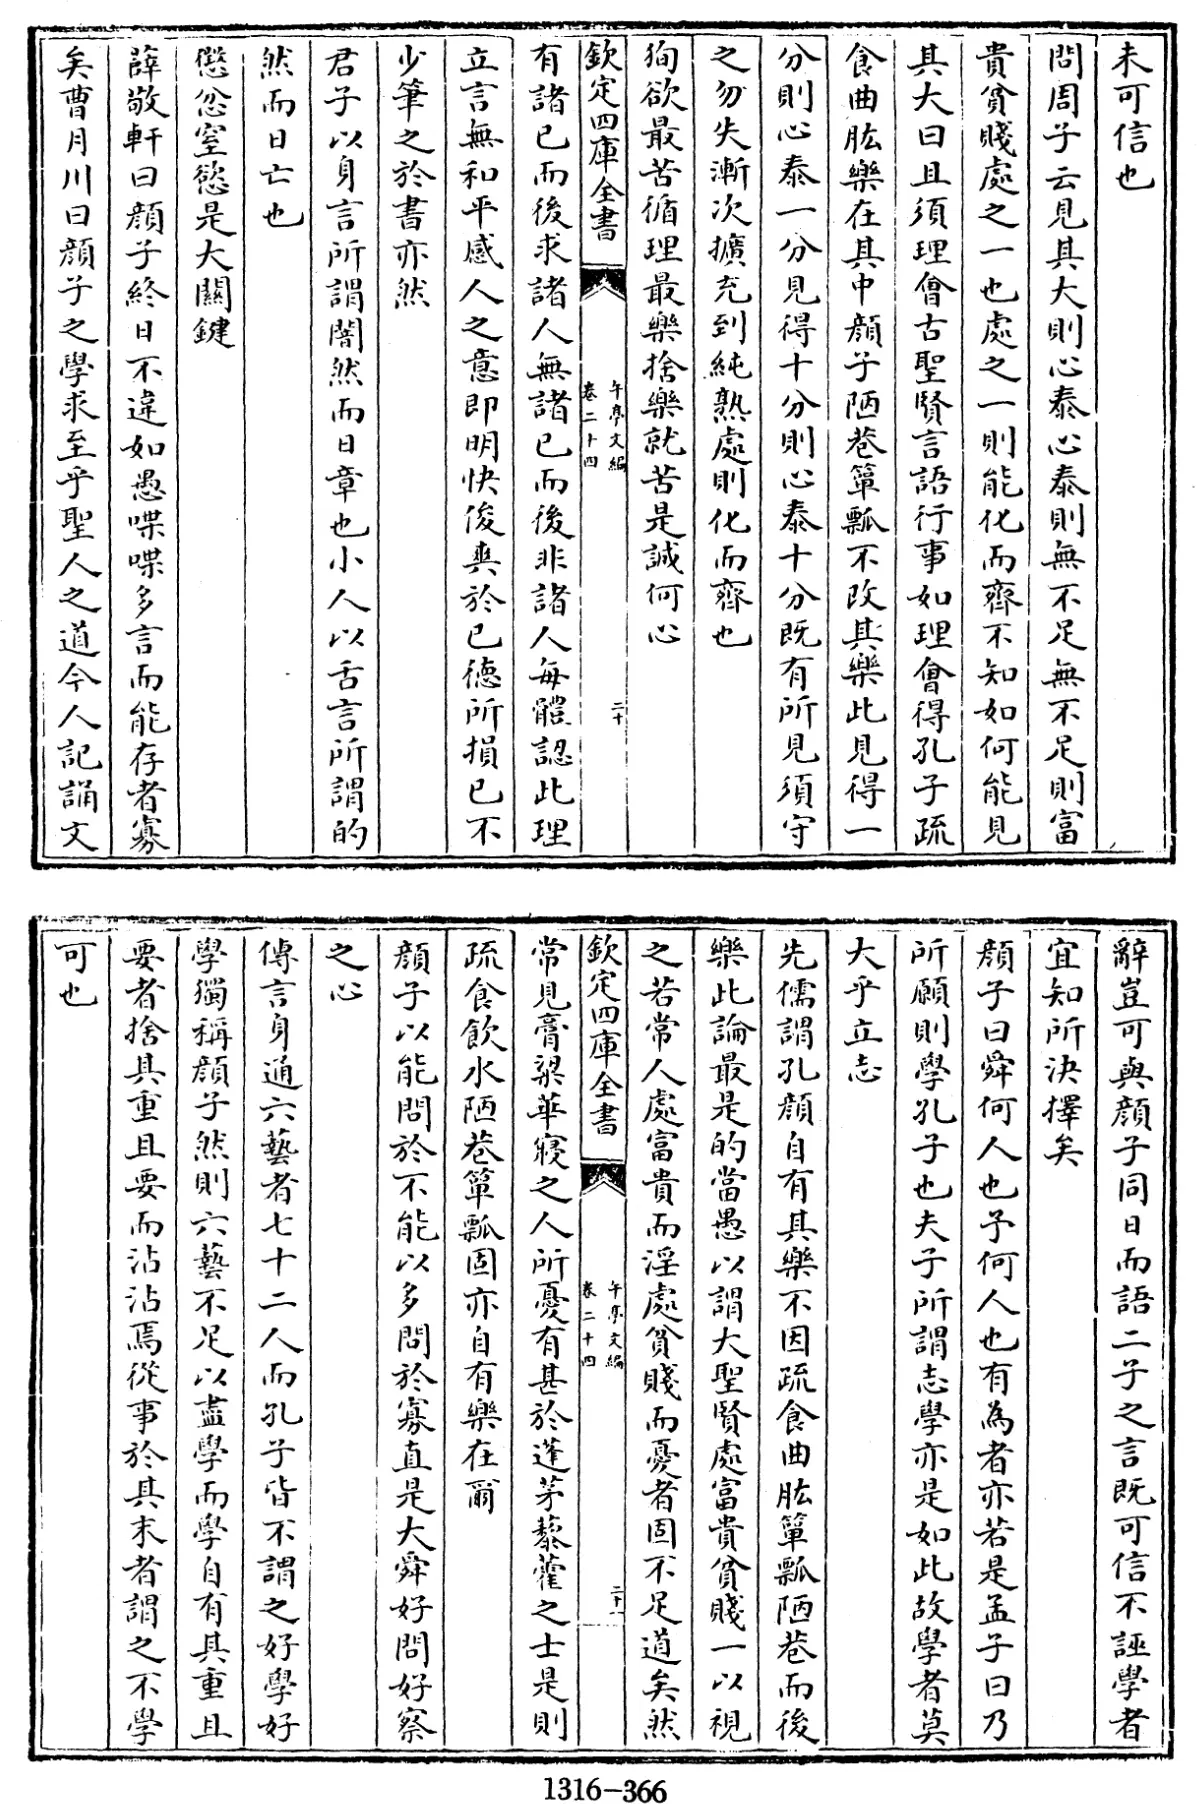 未可信也
問周子云見其大則心泰心泰則無不足無不足則富
貴貧賤處之一也處之一則能化而齊不知如何能見
其大曰且須理會古聖賢言語行事如理會得孔子疏
食曲肱樂在其中顔子陋巷簞瓢不改其樂此見得一
分則心泰一分見得十分則心泰十分既有所見須守
之勿失漸次擴充到純熟處則化而齊也
狥欲最苦循理最樂捨樂就苦是誠何心
欽定四庫全書
午亭文編
卷二十四
二十
有諸已而後求諸人無諸已而後非諸人每體認此理
立言無和平感人之意即明快俊爽於已德所損已不
少筆之於書亦然
君子以身言所謂闇然而日章也小人以舌言所謂的
然而日亡也
懲忿窒慾是大關鍵
薛敬軒曰顔子終日不違如愚喋喋多言而能存者寡
矣曹月川曰顔子之學求至乎聖人之道今人記誦文
辭豈可與顔子同日而語二子之言既可信不誣學者
宜知所決擇矣
顔子曰舜何人也予何人也有為者亦若是孟子曰乃
所願則學孔子也夫子所謂志學亦是如此故學者莫
大乎立志
先儒謂孔顔自有其樂不因疏食曲肱簞瓢陋巷而後
樂此論最是的當愚以謂大聖賢處富貴貧賤一以視
之若常人處富貴而淫處貧賤而憂者固不足道矣然
欽定四庫全書
午亭文編
卷二十四
二十一
常見膏粱華寢之人所憂有甚於蓬茅藜藿之士是則
疏食飲水陋巷簞瓢固亦自有樂在爾
顔子以能問於不能以多問於寡直是大舜好問好察
之心
傳言身通六藝者七十二人而孔子皆不謂之好學好
學獨稱顔子然則六藝不足以盡學而學自有其重且
要者捨其重且要而沾沾焉從事於其末者謂之不學
可也
1316-366